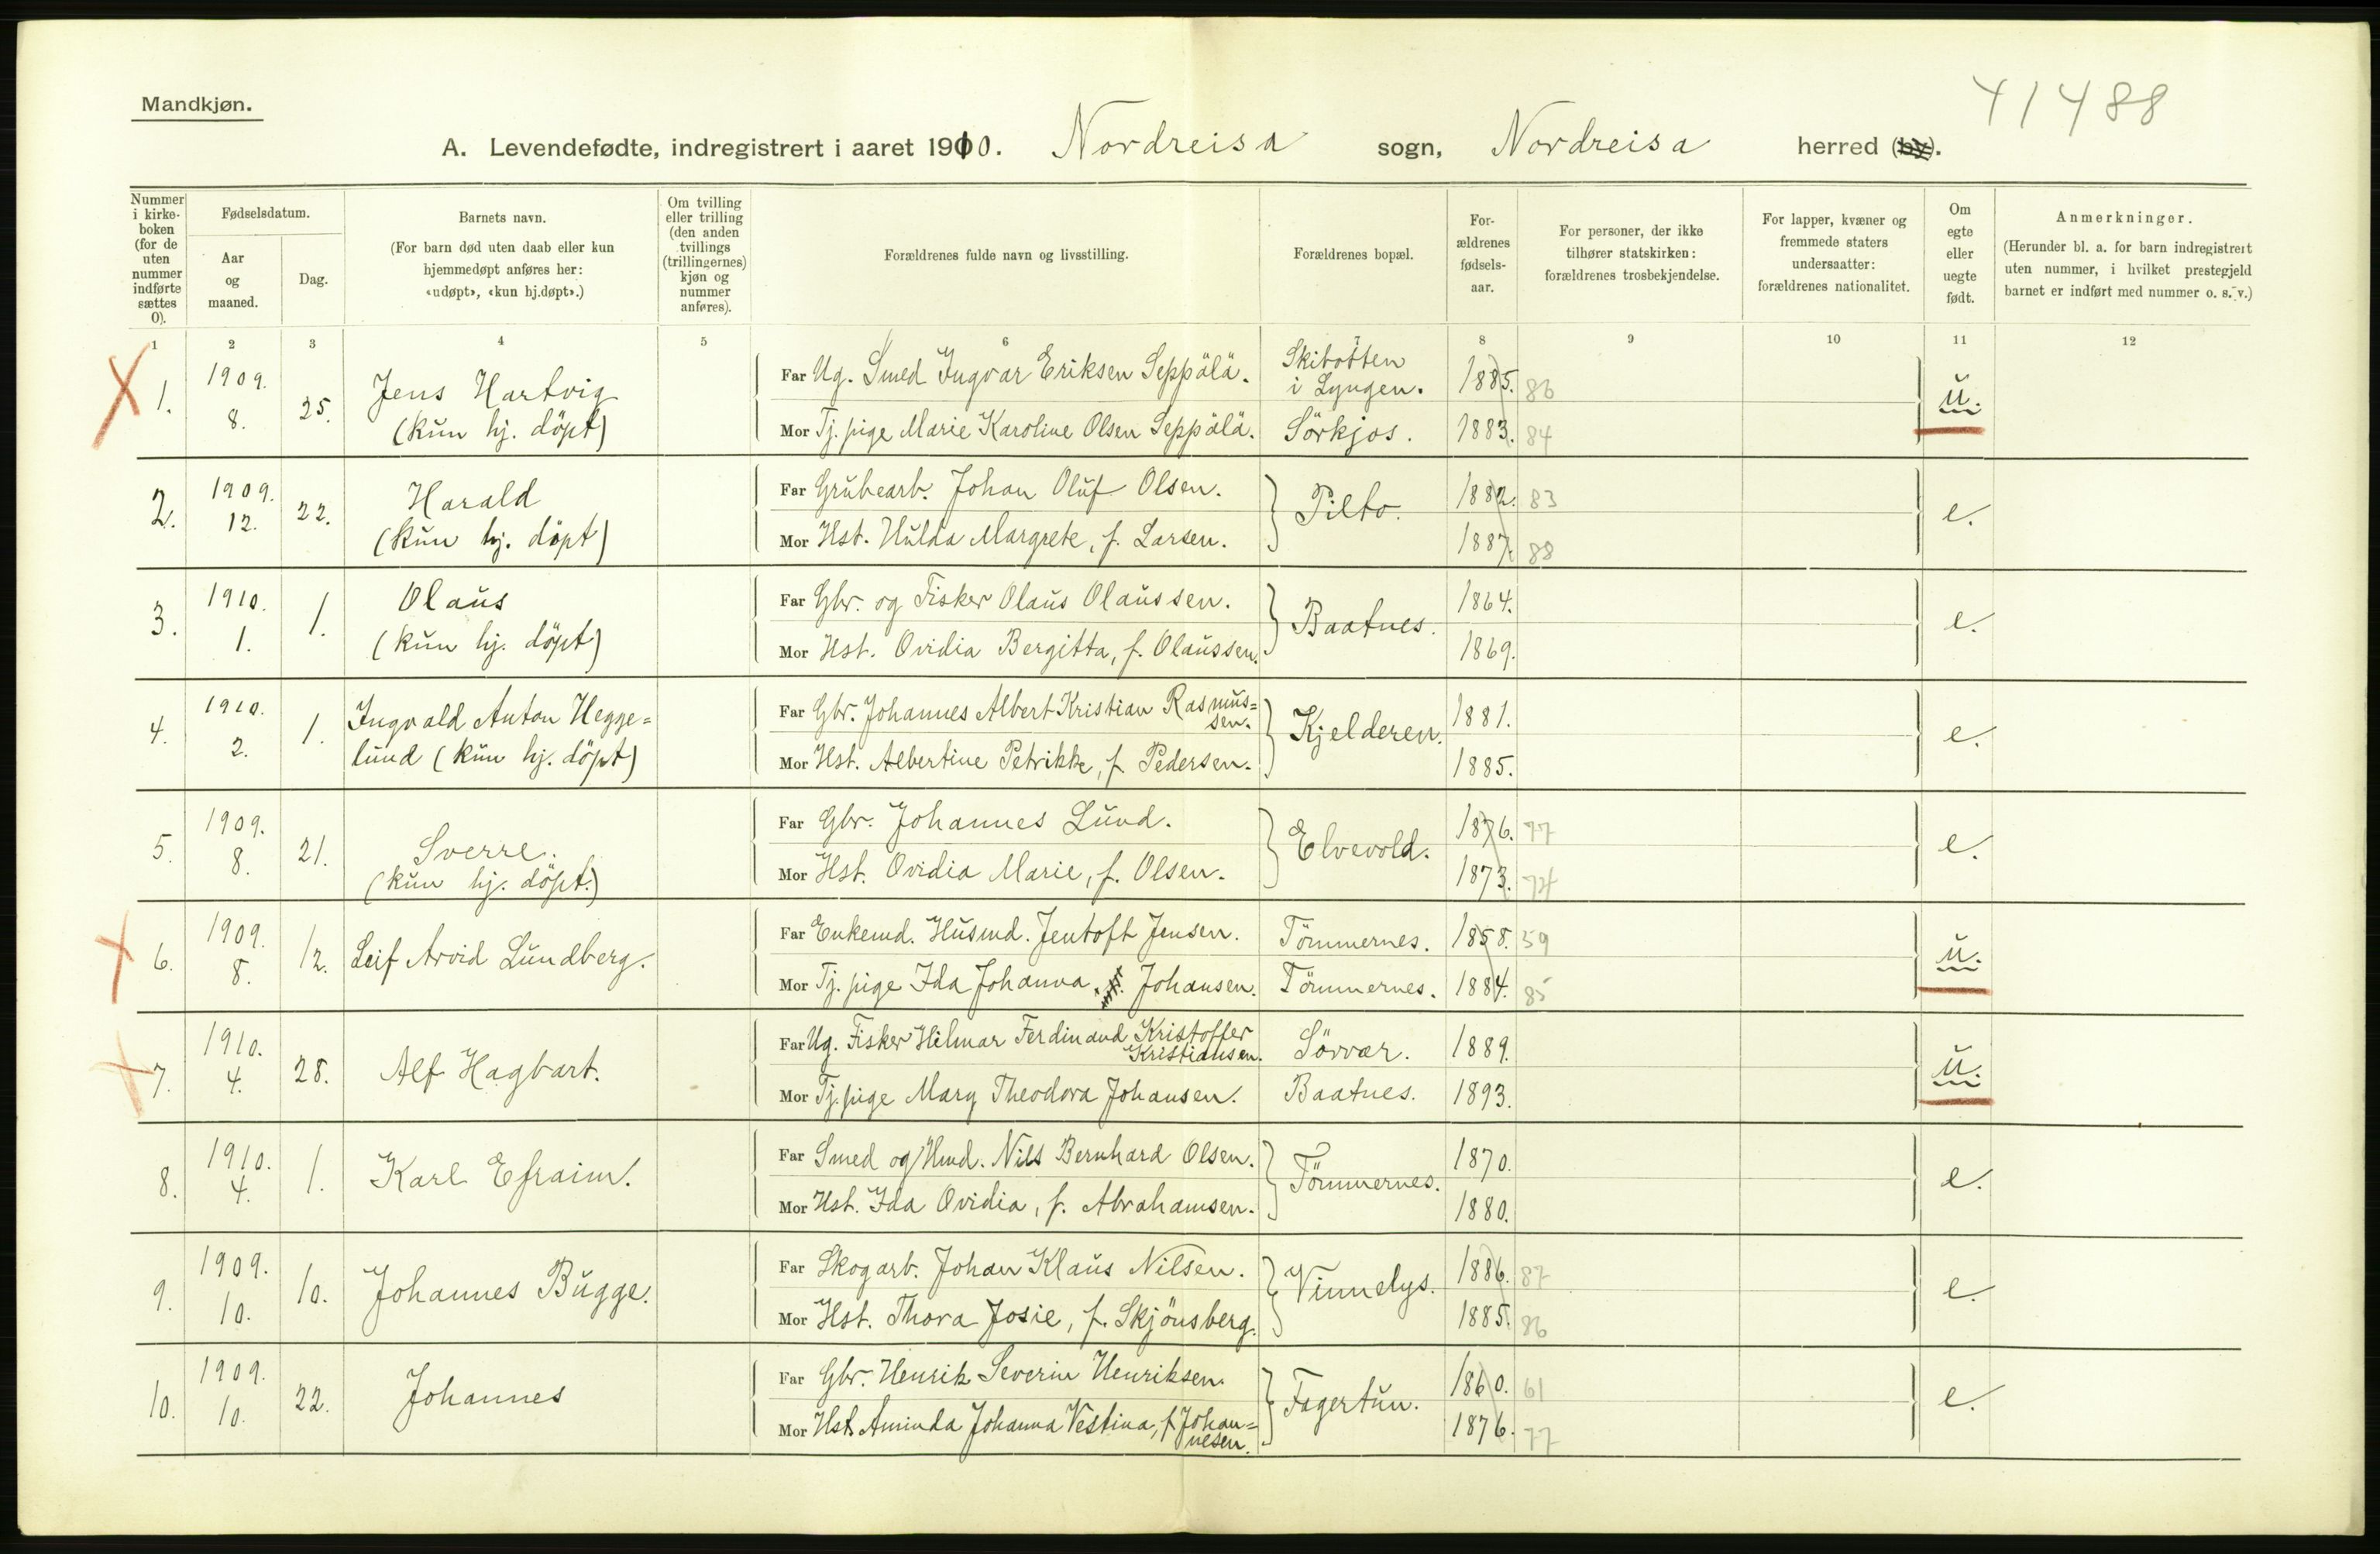 41488
Mandkjøn.
A. Levendefødte, indregistrert i aaret 1910. Nordreisa sogn, Nordreisa herred (by).
Nummer i kirke-boken (for de uten nummer indførte sættes 0).
Fødselsdatum.
Aar og maaned.
Dag.
Barnets navn.
(For barn død uten daab eller kun hjemmedøpt anføres her: «udøpt», «kun hj.døpt».)
Om tvilling eller trilling (den anden tvillings (trillingernes) kjøn og nummer anføres).
Forældrenes fulde navn og livsstilling.
Forældrenes bopæl.
For-ældrenes fødsels-aar.
For personer, der ikke tilhører statskirken: forældrenes trosbekjendelse.
For lapper, kvæner og fremmede staters undersaatter: forældrenes nationalitet.
Om egte eller uegte født.
Anmerkninger.
(Herunder bl. a. for barn indregistrert uten nummer, i hvilket prestegjeld barnet er indført med nummer o. s. v.)
1 2 3 4 5 6 7 8 9 10 11 12
1. 1909. 8. 25. Jens Hartvig (kun hj. döpt)
Far Ug. Smed Ingvar Eriksen Seppälä. Skibotten i Lyngen. 1885. 86
Mor Tj. pige Marie Karoline Olsen Seppälä. Sörkjos. 1883. 84
u.
2. 1909. 12. 22. Harald (kun hj. döpt)
Far Grubearb. Johan Oluf Olsen. Pilto. 1882. 83
Mor Hst. Hulda Margrete, f. Larsen. 1887. 88
e.
3. 1910. 1. 1. Olaus (kun hj. döpt)
Far Gbr. og Fisker Olaus Olaussen. Baatnes. 1864.
Mor Hst. Ovidia Bergitta, f. Olaussen. 1869.
e.
4. 1910. 2. 1. Ingvald Anton Hegge=
lund (kun hj. döpt)
Far Gbr. Johannes Albert Kristian Rasmus=
sen. Kjelderen. 1881.
Mor Hst. Albertine Petrikke, f. Pedersen. 1885.
e.
5. 1909. 8. 21. Sverre. (kun hj. döpt.)
Far Gbr. Johannes Lund. Elvevold. 1876. 77
Mor Hst. Ovidia Marie, f. Olsen. 1873. 74
e.
6. 1909. 8. 12. Leif Arvid Lundberg.
Far Enkemd. Husmd. Jentoft Jensen. Tömmernes. 1858. 59
Mor Tj. pige Ida Johanna Johansen. Tömmernes. 1884. 85
u.
7. 1910. 4. 28. Alf Hagbart.
Far Ug. Fisker Hilmar Ferdinand Kristoffer
Kristiansen. Sörvær. 1889.
Mor Tj. pige Mary Theodora Johansen. Baatnes. 1893.
u.
8. 1910. 4. 1. Karl Efraim.
Far Smed og Hmd. Nils Bernhard Olsen. Tömmernes. 1870.
Mor Hst. Ida Ovidia, f. Abrahamsen. 1880.
e.
9. 1909. 10. 10. Johannes Bugge.
Far Skogarb. Johan Klaus Nilsen. Vinnelys. 1886. 87
Mor Hst. Thora Josie, f. Skjönsberg. 1885. 86
e.
10. 1909. 10. 22. Johannes
Far Gbr. Henrik Severin Henriksen. Fagertun. 1860. 61
Mor Hst. Aminda Johanna Vestina, f. Johan=
nesen. 1876. 77
e.